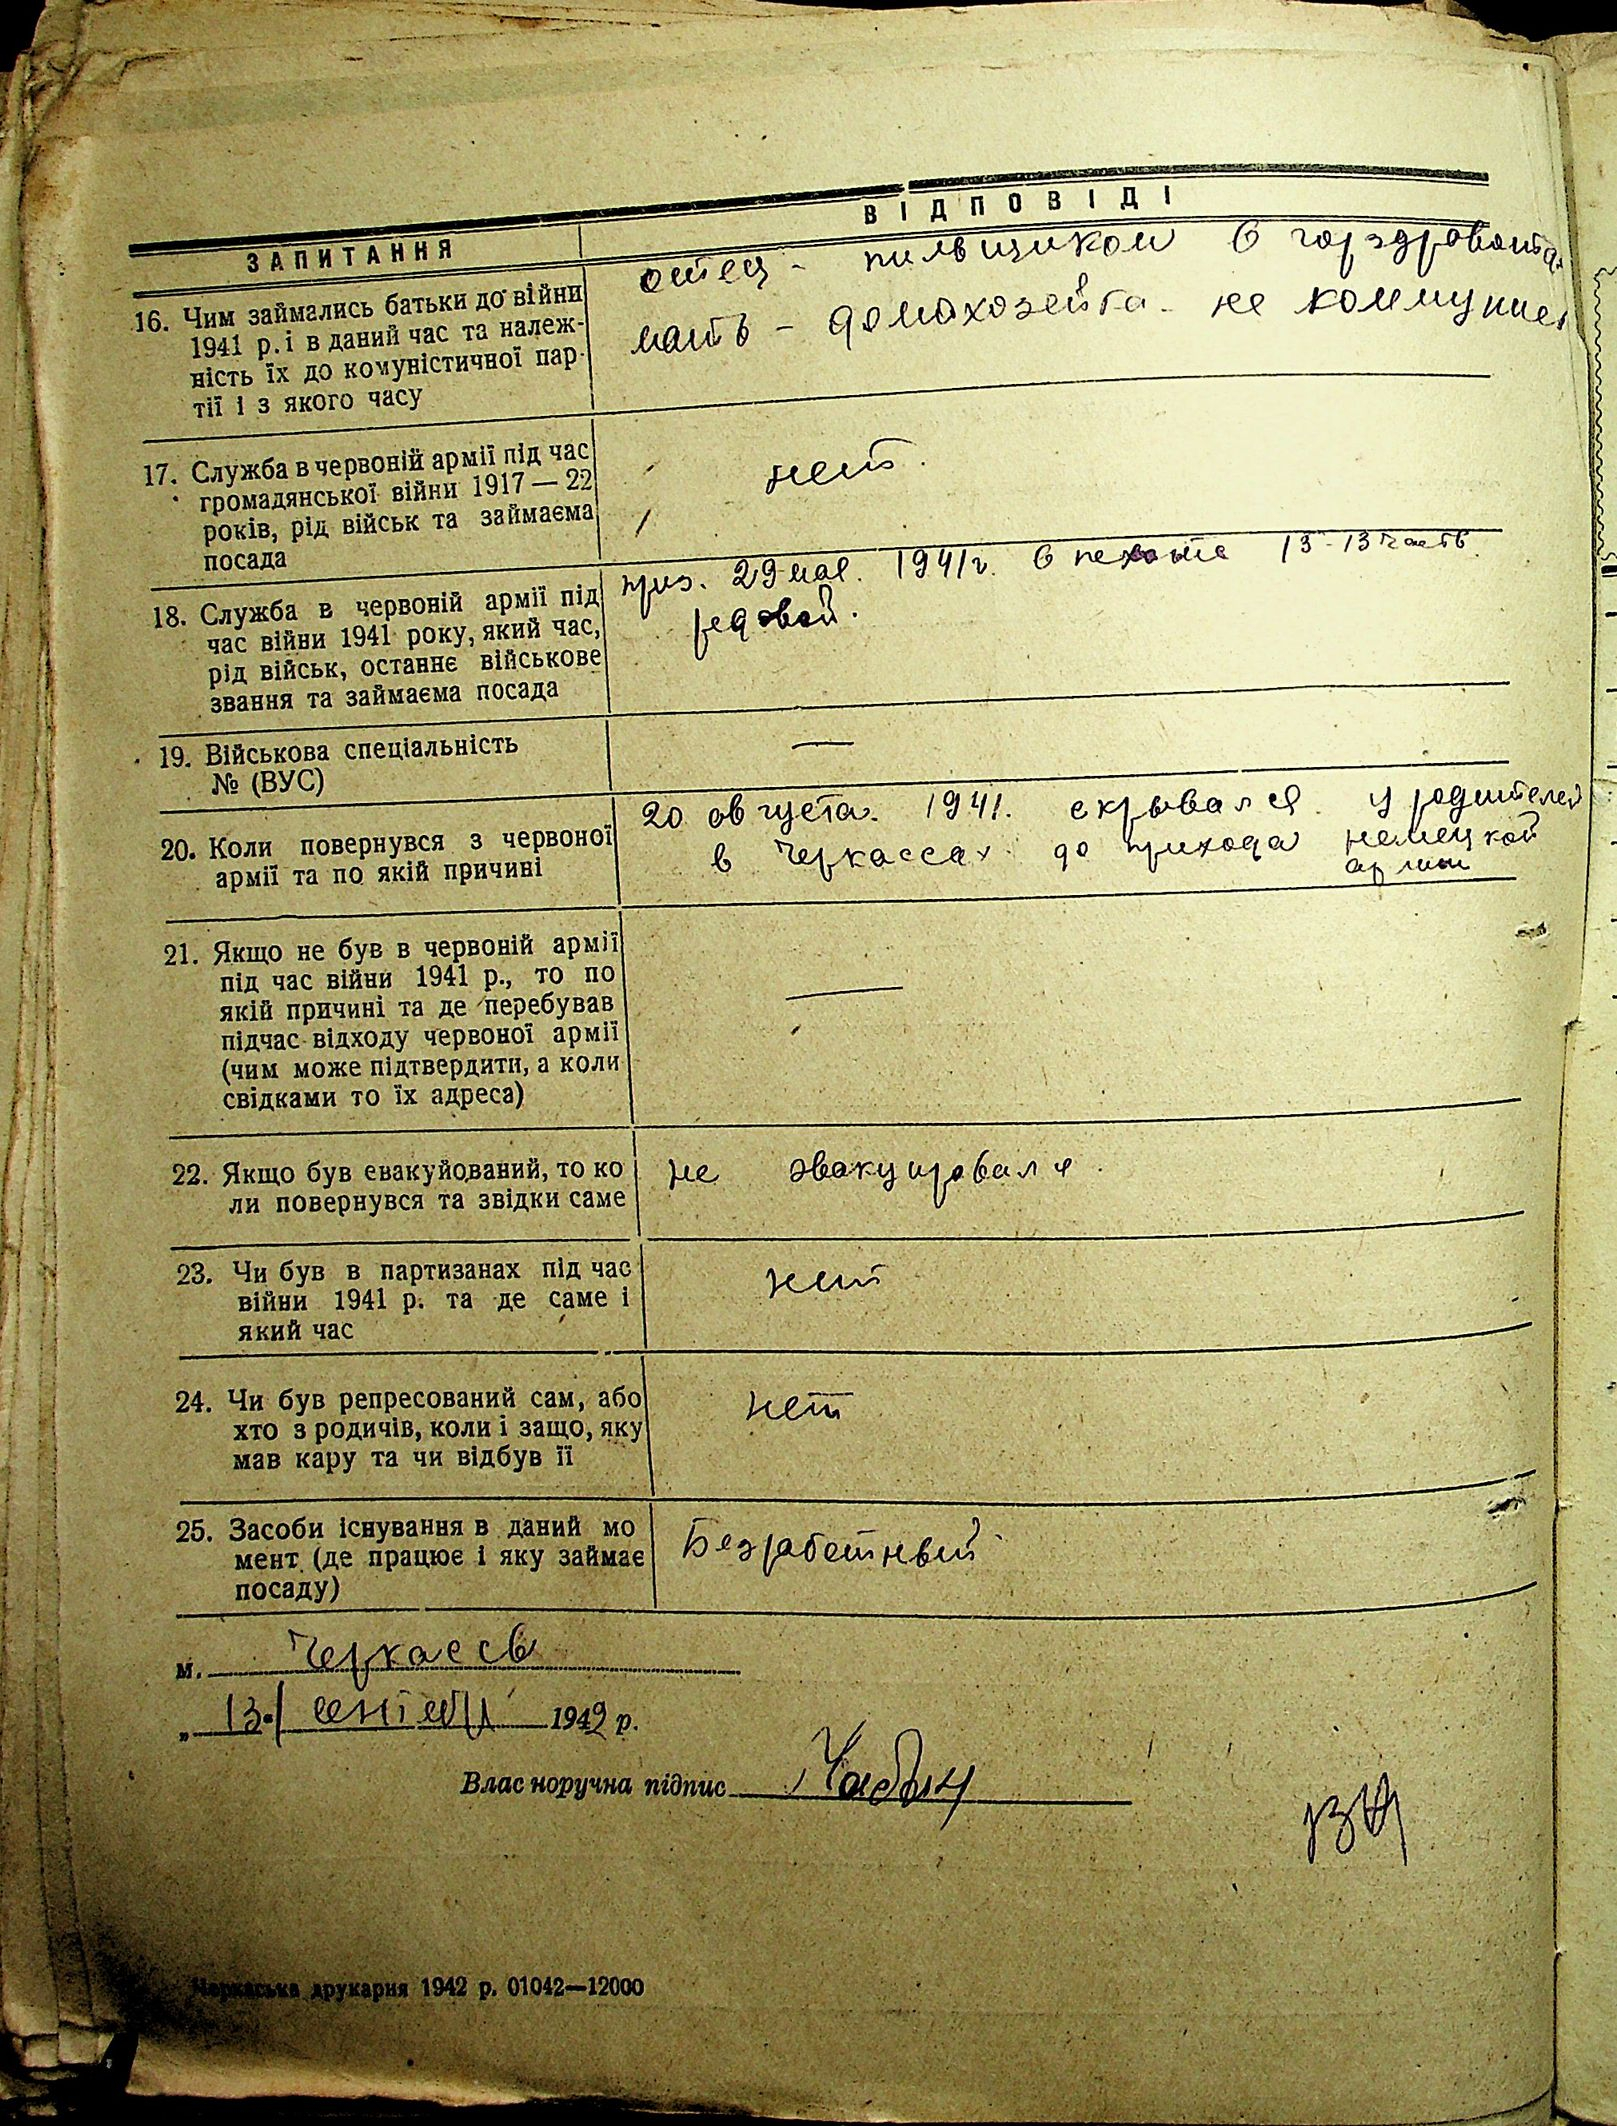 ЗАПИТАННЯ
ВІДПОВІДІ
16. Чим займались батьки до війни
1941 р. і в даний час та належ-
ність їх до комуністичної пар-
тії і з якого часу
отец - пильщиком в горздравотд.
мать - домохозейка. не коммунист
17. Служба в червоній армії під час
громадянської війни 1917 — 22
років, рід військ та займаєма
посада
нет.
18. Служба в червоній армії під
час війни 1941 року, який час,
рід військ, останнє військове
звання та займаєма посада
приз. 29 мая. 1941 г. в пехоте 13-13 часть.
редовой.
19. Військова спеціальність
№ (ВУС)
—
20. Коли повернувся з червоної
армії та по якій причині
20 августа. 1941. скрывался у родителей
в Черкассах до прихода немецкой
армии
21. Якщо не був в червоній армії
під час війни 1941 р., то по
якій причині та де перебував
підчас відходу червоної армії
(чим може підтвердити, а коли
свідками то їх адреса)
—
22. Якщо був евакуйований, то ко
ли повернувся та звідки саме
не эвакуировался.
23. Чи був в партизанах під час
війни 1941 р. та де саме і
який час
нет
24. Чи був репресований сам, або
хто з родичів, коли і защо, яку
мав кару та чи відбув її
нет
25. Засоби існування в даний мо
мент (де працює і яку займає
посаду)
Безработный
м. Черкассы
„ 13. 1942 р.
Власноручна підпис
Черкаська друкарня 1942 р. 01042—12000